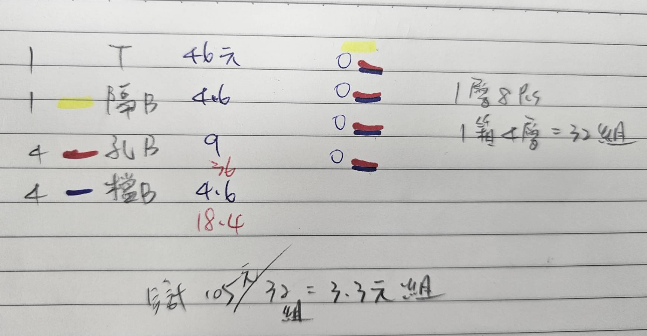 1 T 46元
1 隔B 4.6
4 孔B 9
36
4 檔B 4.6
18.4
1層8Pcs
1箱4層=32組
合計 105元/32組=3.3元組